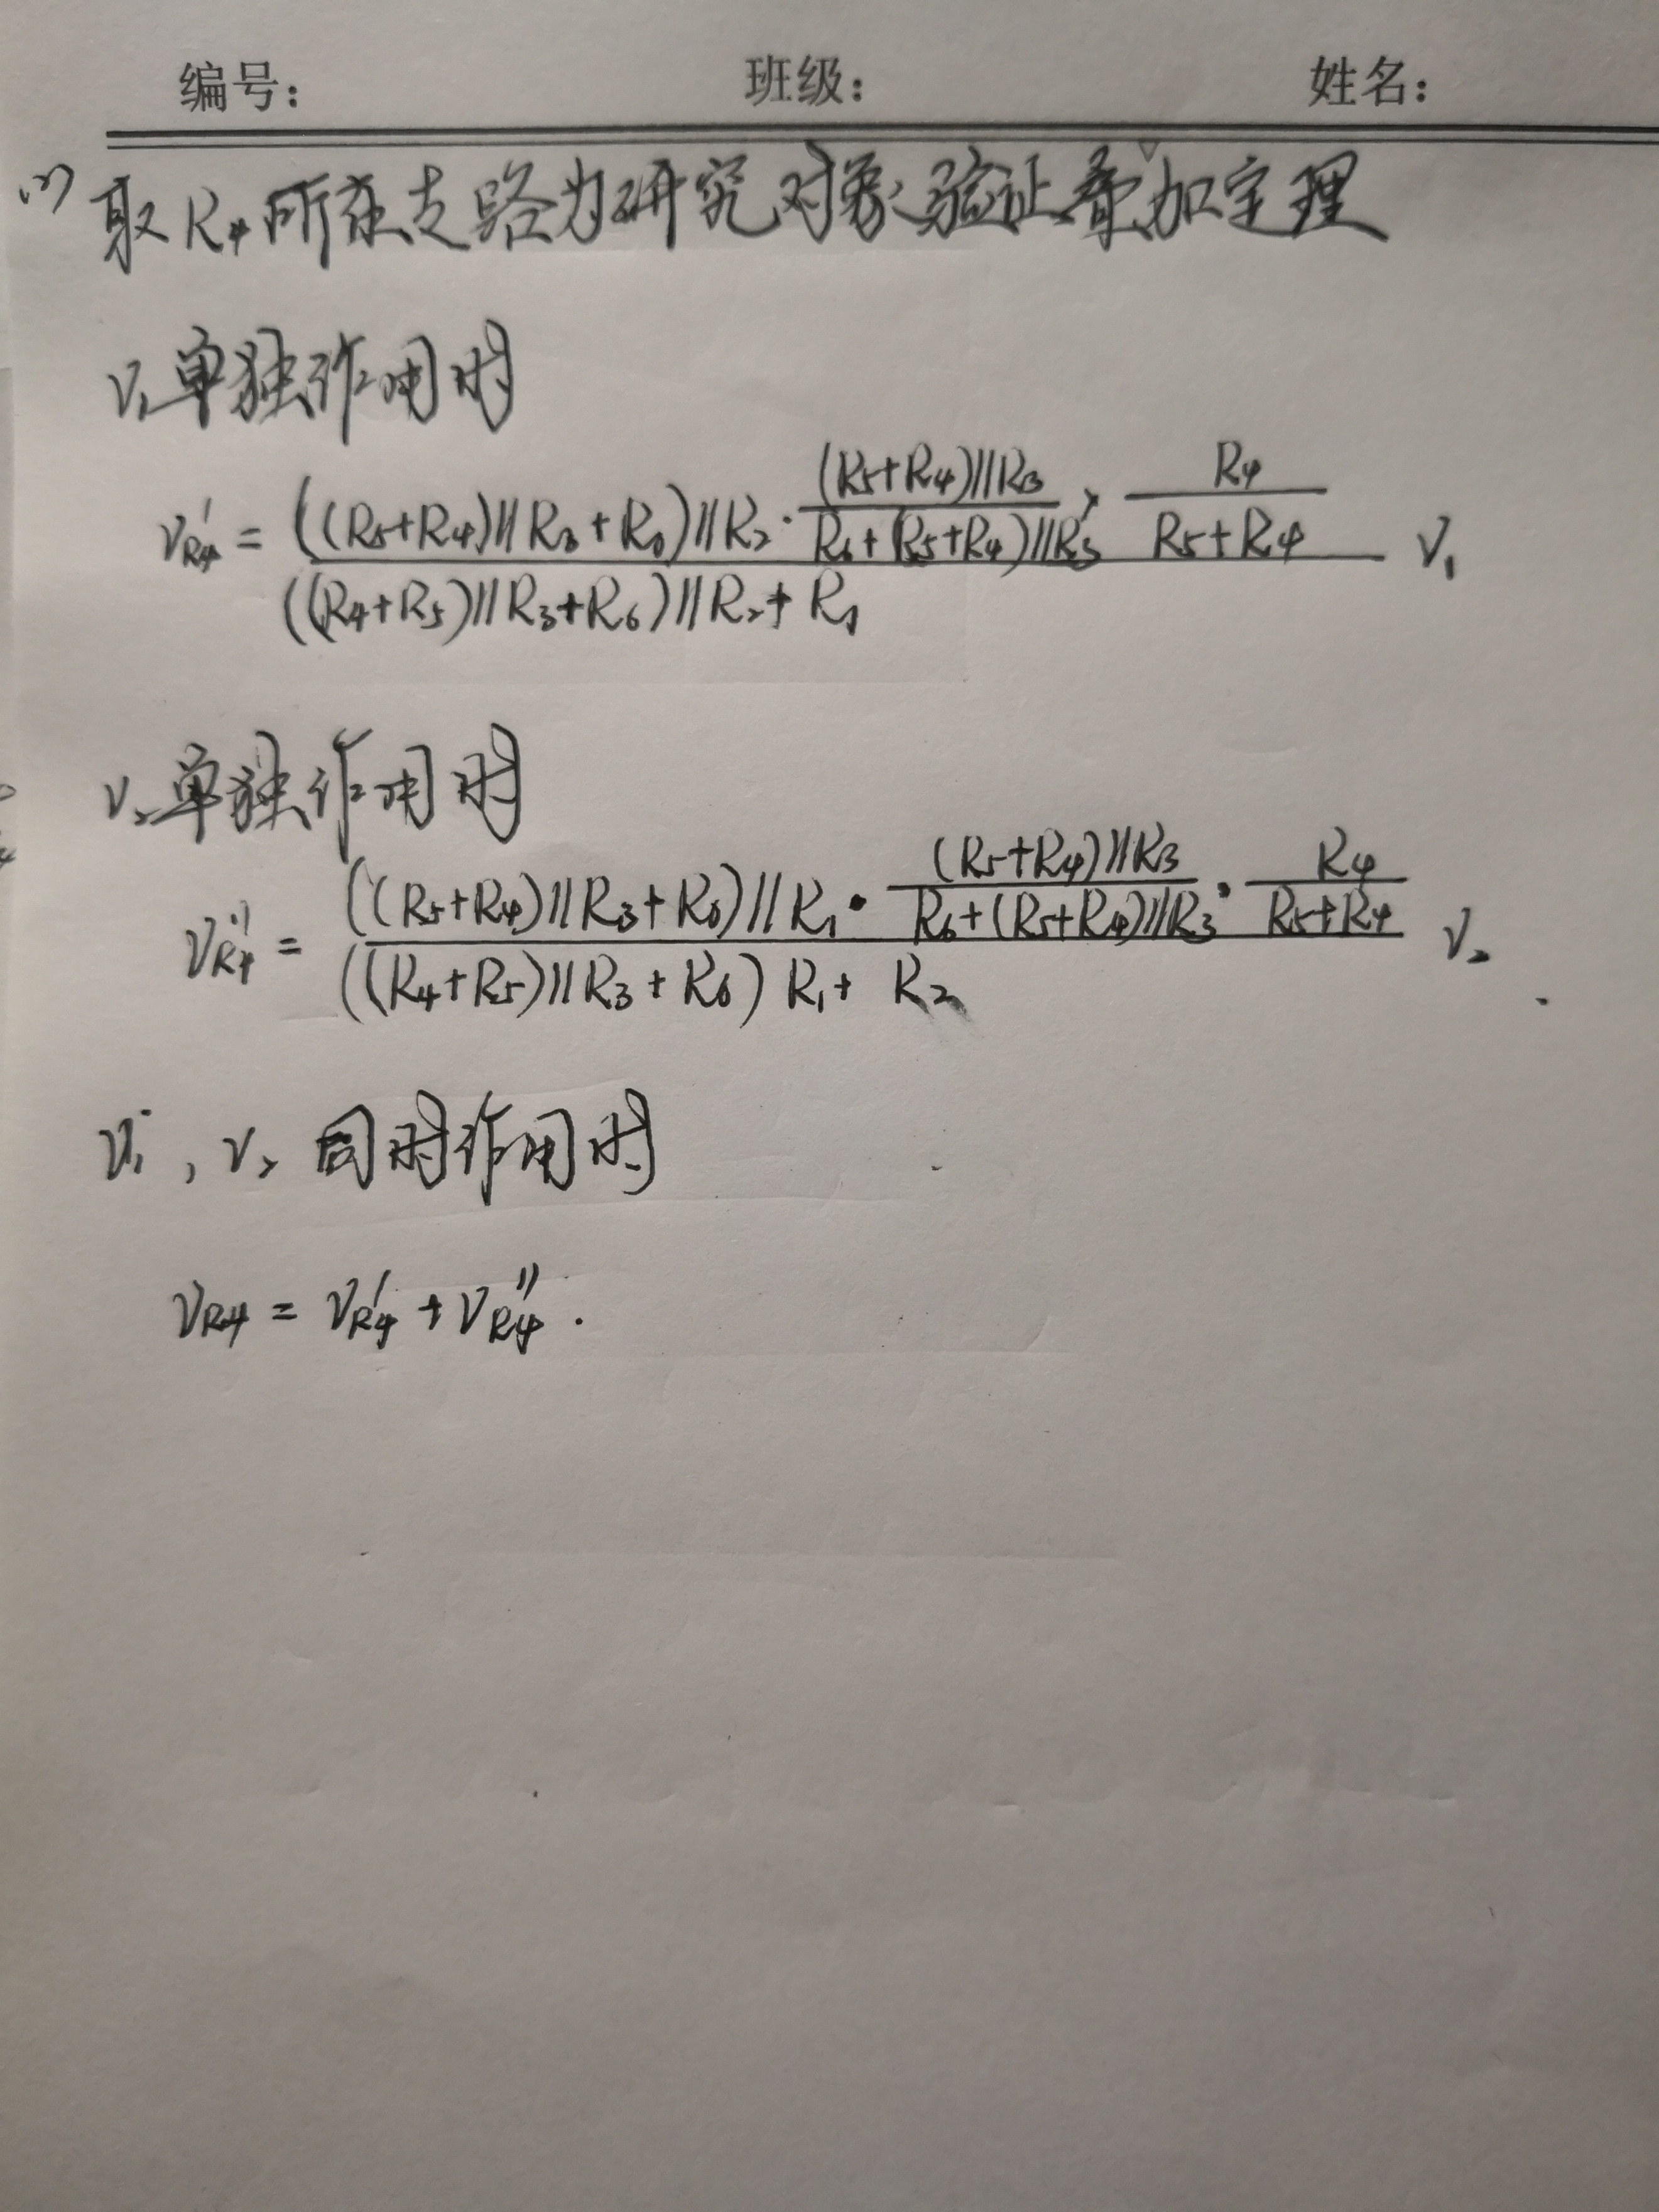 编号： 班级： 姓名：
(2) 取R₄所在支路为研究对象，验证叠加定理
V₁单独作用时
V'_{R4} = \frac{((R₅+R₄)//R₃+R₆)//R₂·\frac{(R₅+R₄)//R₃}{R₆+(R₅+R₄)//R₃}×\frac{R₄}{R₅+R₄}}{((R₄+R₅)//R₃+R₆)//R₂+R₁} V₁
V₂单独作用时
V''_{R4} = \frac{((R₅+R₄)//R₃+R₆)//R₁·\frac{(R₅+R₄)//R₃}{R₆+(R₅+R₄)//R₃}·\frac{R₄}{R₅+R₄}}{((R₄+R₅)//R₃+R₆) R₁+R₂} V₂
V₁，V₂ 同时作用时
V_{R4} = V'_{R4} + V''_{R4}.